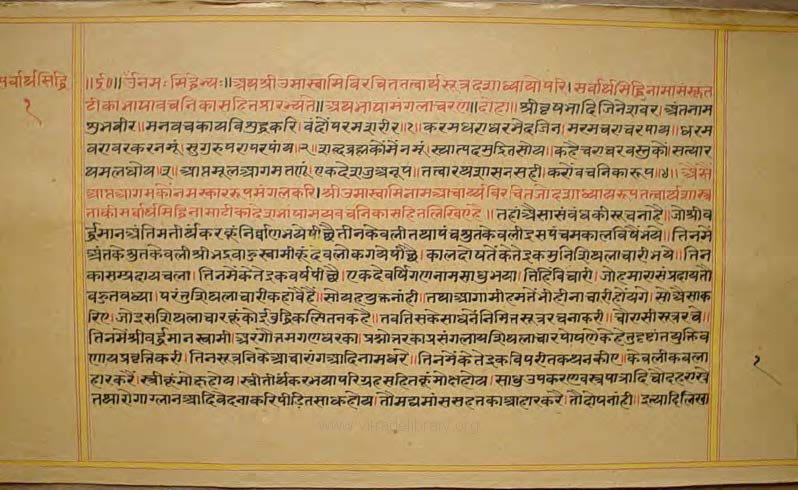 सर्वार्थसिद्धि
१
॥६०॥ ॐनमः सिद्धेभ्यः॥ अथ श्रीउमास्वामिविरचिततत्वार्थसूत्रदशाध्यायोपरि। सर्वार्थसिद्धिनामासंस्कृत
टीकाभाषावचनिकासहितप्रारभ्यते॥ अथभाषामंगलाचरण॥ दोहा॥ श्रीवृषभादिजिनेशवर। अंतनाम
शुभवीर। मनवचकायविशुद्धकरि। वंदोंपरमशरीर॥१॥ करमधराधरभेदजिन। मरमचराचरपाय। धरम
वरावरकरनमूं। सुगुरुपरापरपाय॥२॥ शब्दब्रह्मकोंमैंनमूं। स्यात्पदमुद्रितसोय। कहैचराचरवस्तुकों। सत्यार
थमलधोय॥३॥ आप्तमूलआगमतणूं। एकदेशशुधरूप। तत्वारथशासनसही। करोंवचनिकारूप॥४॥ ऐसैं
आप्तआगमकोंनमस्काररूपमंगलकरि। श्रीउमास्वामिनामआचार्यविरचितजोदशाध्यायरूपतत्वार्थशास्त्र
ताकीसर्वार्थसिद्धिनामाटीकादेशभाषामयवचनिकासहितलिखिएहै॥ तहांऐसासंबंधकीसूचनाहै। जोश्रीव
र्द्धमानअंतिमतीर्थंकरकूंनिर्वाणभयेपीछैतीनकेवलीतथापंचश्रुतकेवलीइसपंचमकालविषैंभये। तिनमें
अंतकेश्रुतकेवलीश्रीभद्रबाहुस्वामीकूंदेवलोकगयेपीछै। कालदोषतैंकेतेइकमुनिशिथिलाचारीभये। तिन
कासम्प्रदायचला। तिनमेंकेतेइकवर्षपीछै। एकदेवर्धिगणनामसाधुभया। तिहिंविचारी। जोहमारासंप्रदायतौ
बहुतवध्या। परंतुशिथिलाचारीकहावैहैं। सोयहयुक्तनांही। तथाआगामीहमतैंभीहीनाचारीहोंयगे। सोऐसाक
रिए। जोइसशिथिलाचारकूंकोईबुद्धिकल्पितनकहै। तबतिसकेसाधनैनिमित्तसूत्ररचनाकरी। चोरासीसूत्ररचे।
तिनमेंश्रीवर्द्धमानस्वामी। अरगौतमगणधरका। प्रश्नोत्तरकाप्रसंगल्यायशिथिलाचारपोषणेकेहेतुदृष्टांतयुक्तिव
णायप्रवृत्तिकरी। तिनसूत्रनिकेआचारांगआदिनामधरे। तिनमेंकेतेइकविपरीतकथनकीए। केवलीकवला
हारकरै। स्त्रीकूंमोक्षहोय। स्त्रीतीर्थंकरभयापरिग्रहसहितकूंमोक्षहोय। साधुउपकरणवस्त्रपात्रादिचोदहराखे
तथारोगग्लानआदिवेदनाकरिपीड़ितसाधुहोय। तौमद्यमांससहतकाआहारकरै। तौदोषनांही। इत्यादिलिखा
१
www.vitragelibrary.org